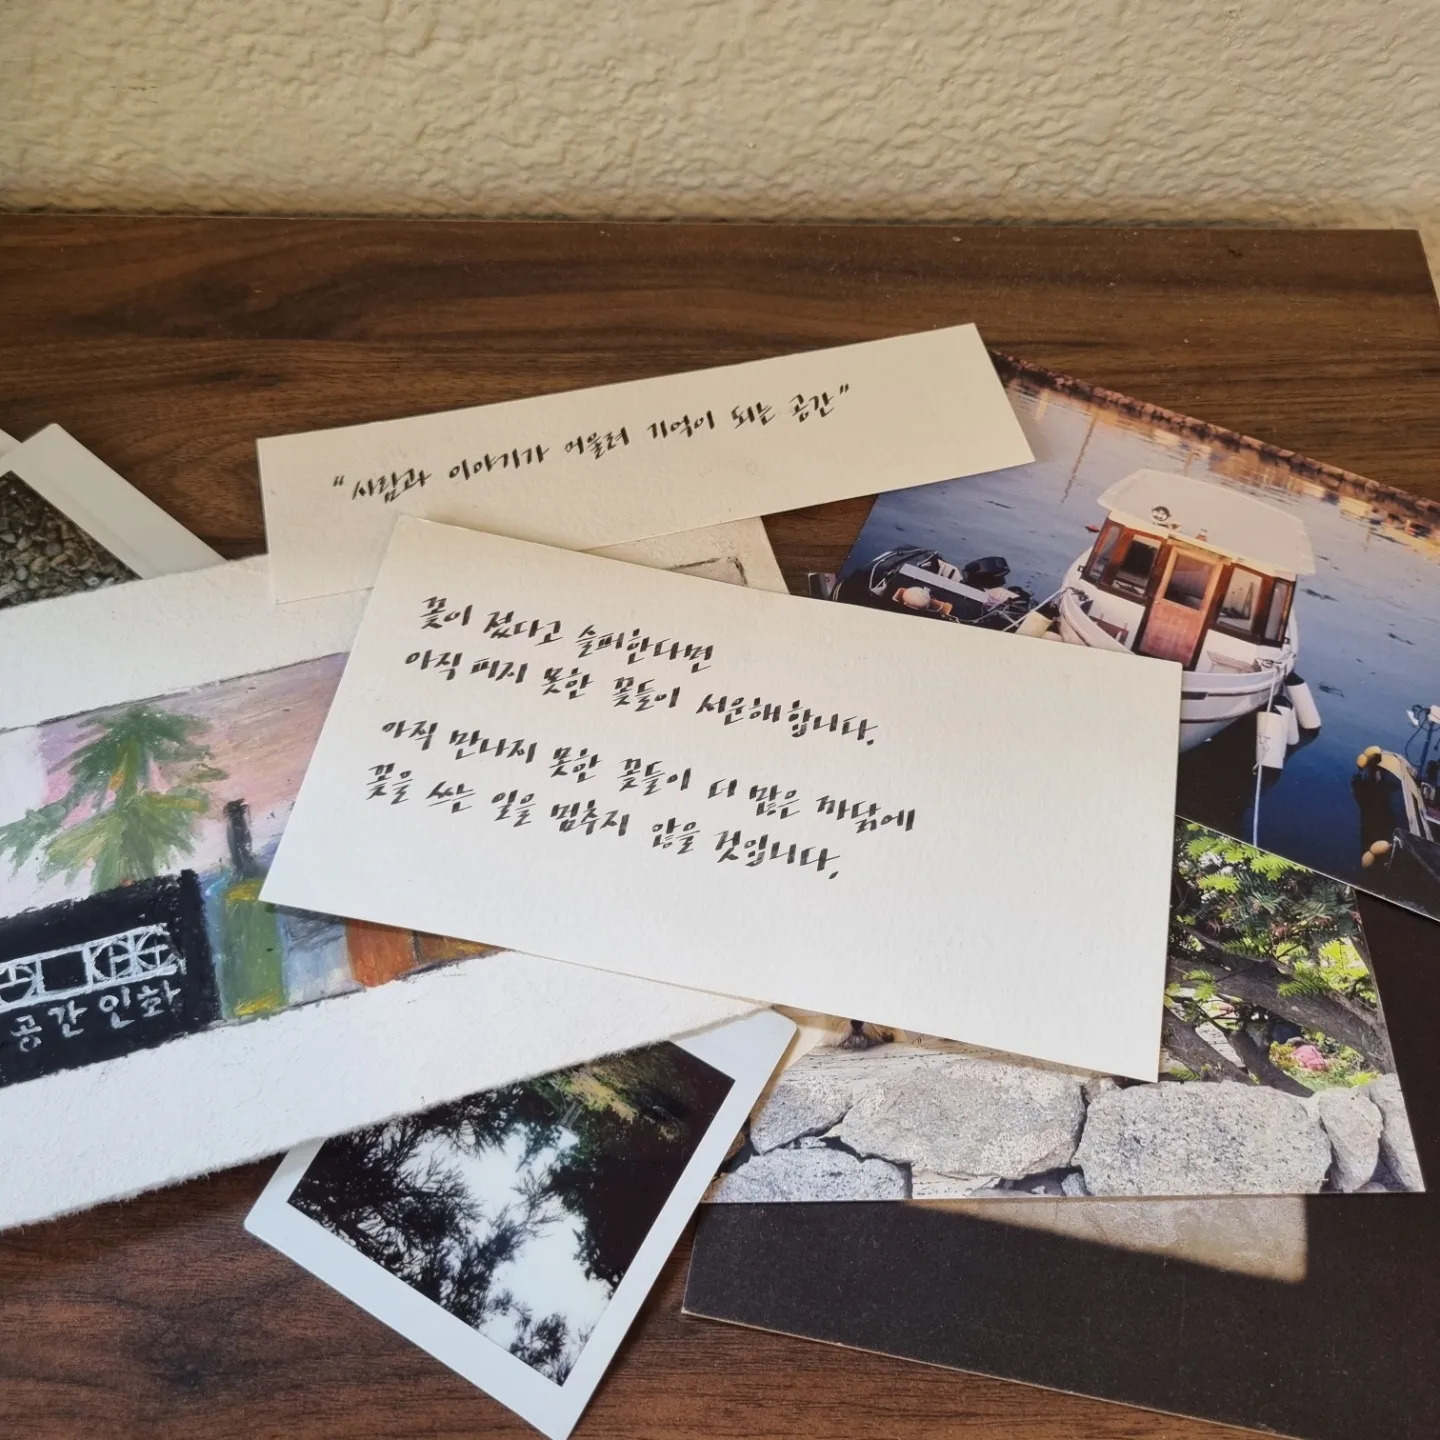 "사람과 이야기가 어울려 기억이 되는 공간"
꽃이 졌다고 슬퍼한다면
아직 피지 못한 꽃들이 서운해합니다.
아직 만나지 못한 꽃들이 더 많은 까닭에
꽃을 쓰는 일을 멈추지 않을 것입니다.
공간인화